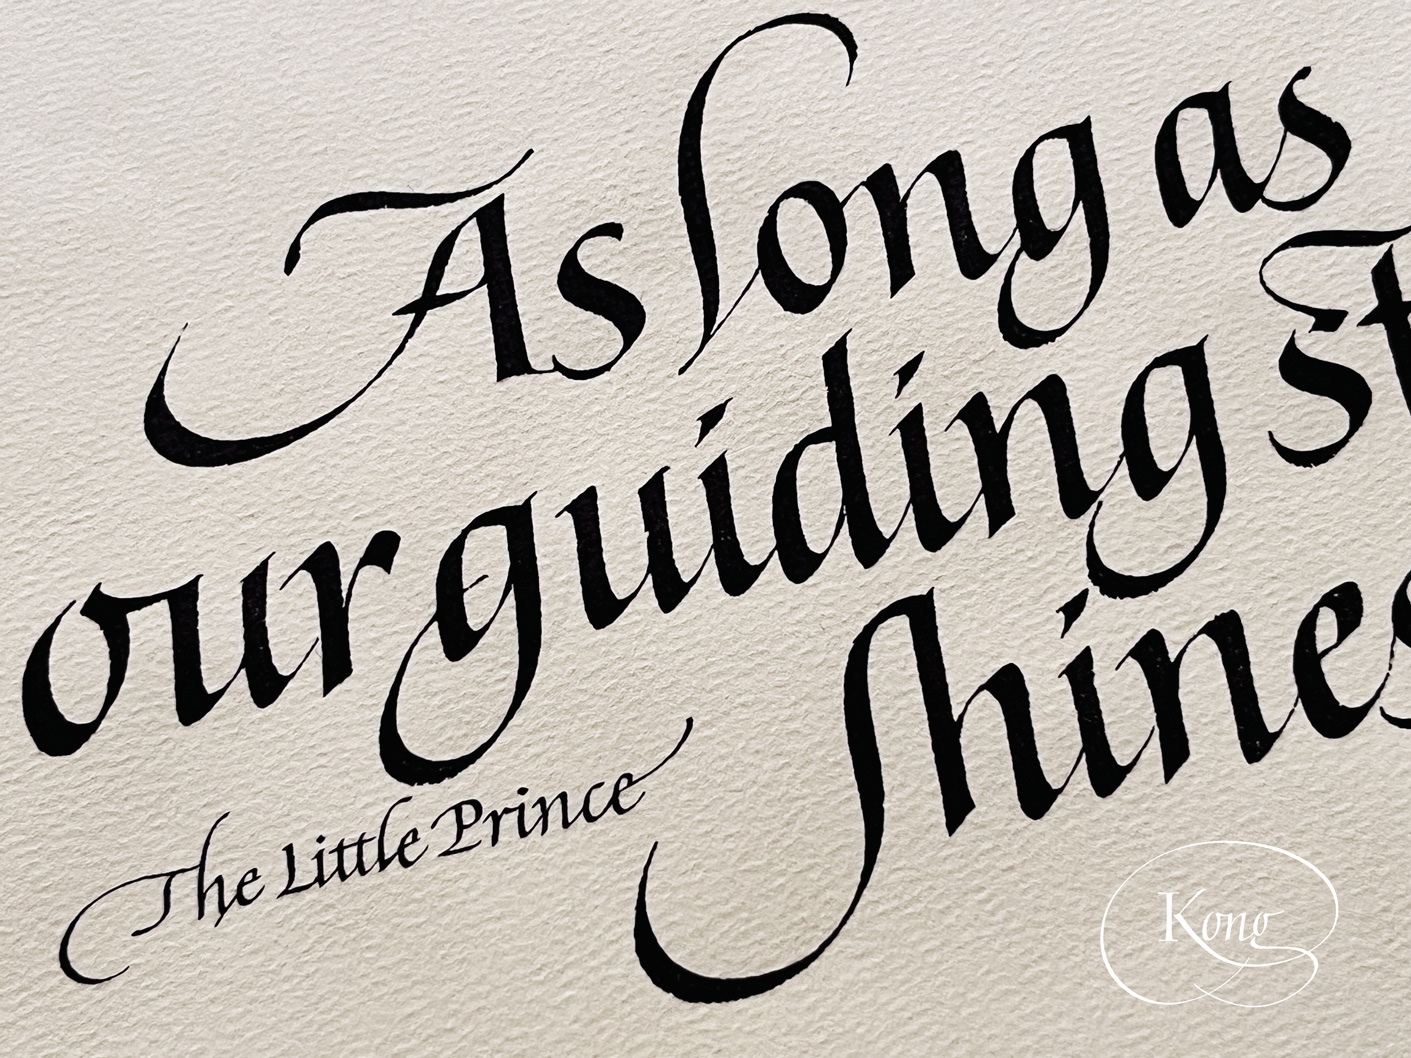 As long as
our guiding st
shines
The Little Prince
Kong